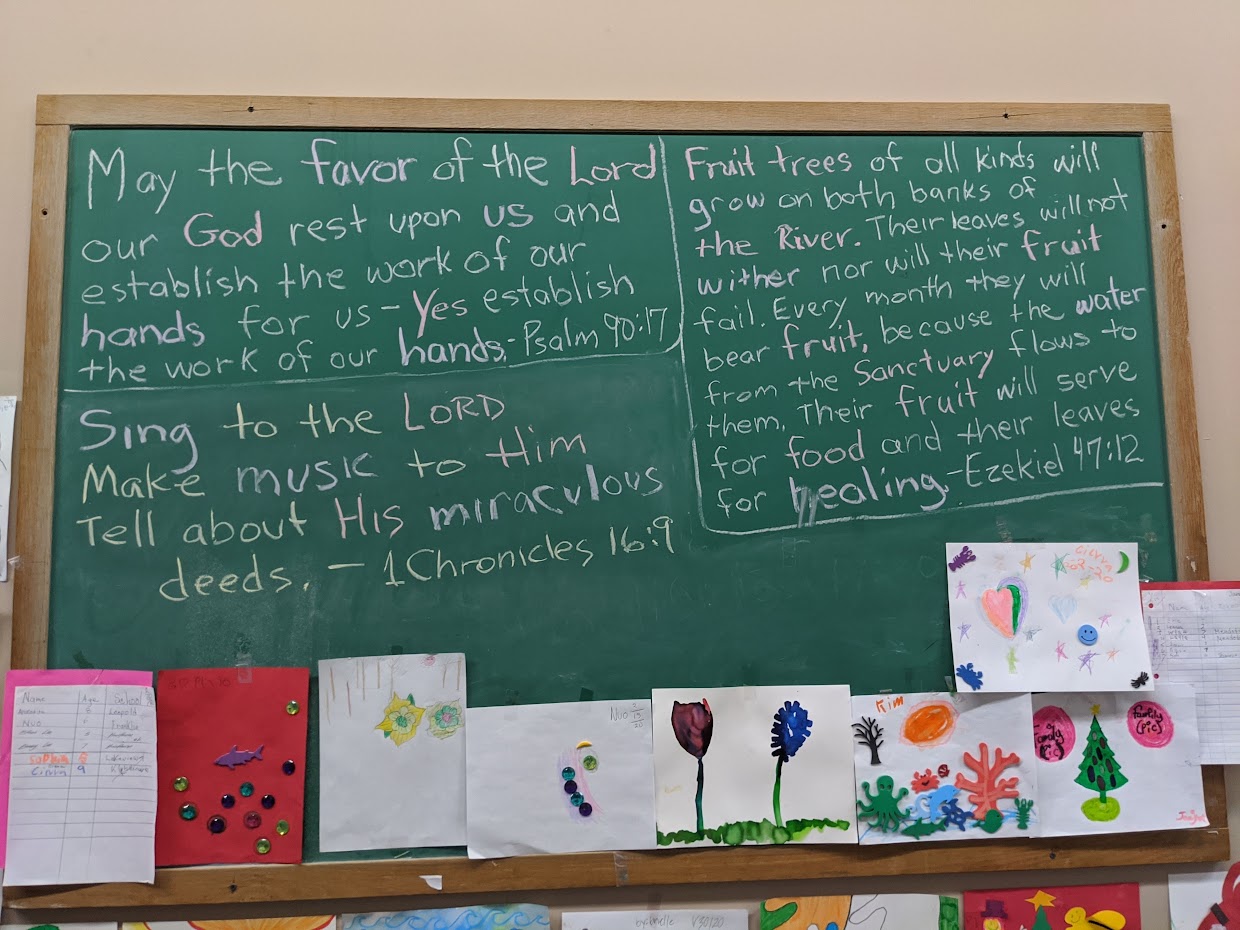 May the favor of the Lord
our God rest upon us and
establish the work of our
hands for us - Yes establish
the work of our hands. - Psalm 90:17
Sing to the LORD
Make music to Him
Tell about His miraculous
deeds. - 1 Chronicles 16:9
Fruit trees of all kinds will
grow on both banks of
the River. Their leaves will not
wither nor will their fruit
fail. Every month they will
bear fruit, because the water
from the Sanctuary flows to
them. Their fruit will serve
for food and their leaves
for healing. - Ezekiel 47:12
Name Age School
Nuo
9
Nuo 2
15
20
Kim
Family
(Pic)
Family
(Pic)
Name